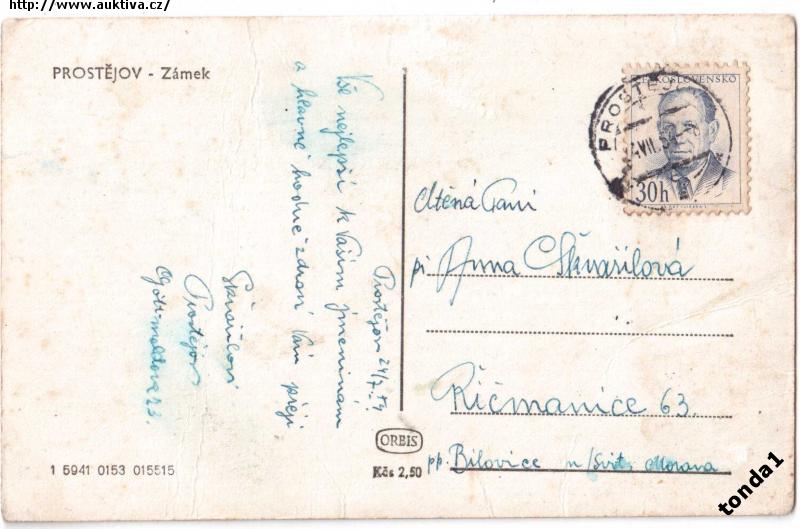 http://www.auktiva.cz/
PROSTĚJOV - Zámek
ČESKOSLOVENSKO
PROSTĚJOV
30h
Prostějov 24/7. 54
Vše nejlepší k Vašim jmeninám
a hlavně hodně zdraví Vám přeji
Škvařilovi
Prostějov
23.
Ctěná Paní
pí Anna Škvařilová
Řičmanice 63.
pp. Bílovice n/Svit. Morava
ORBIS
Kčs 2,50
1 5941 0153 015515
tonda1